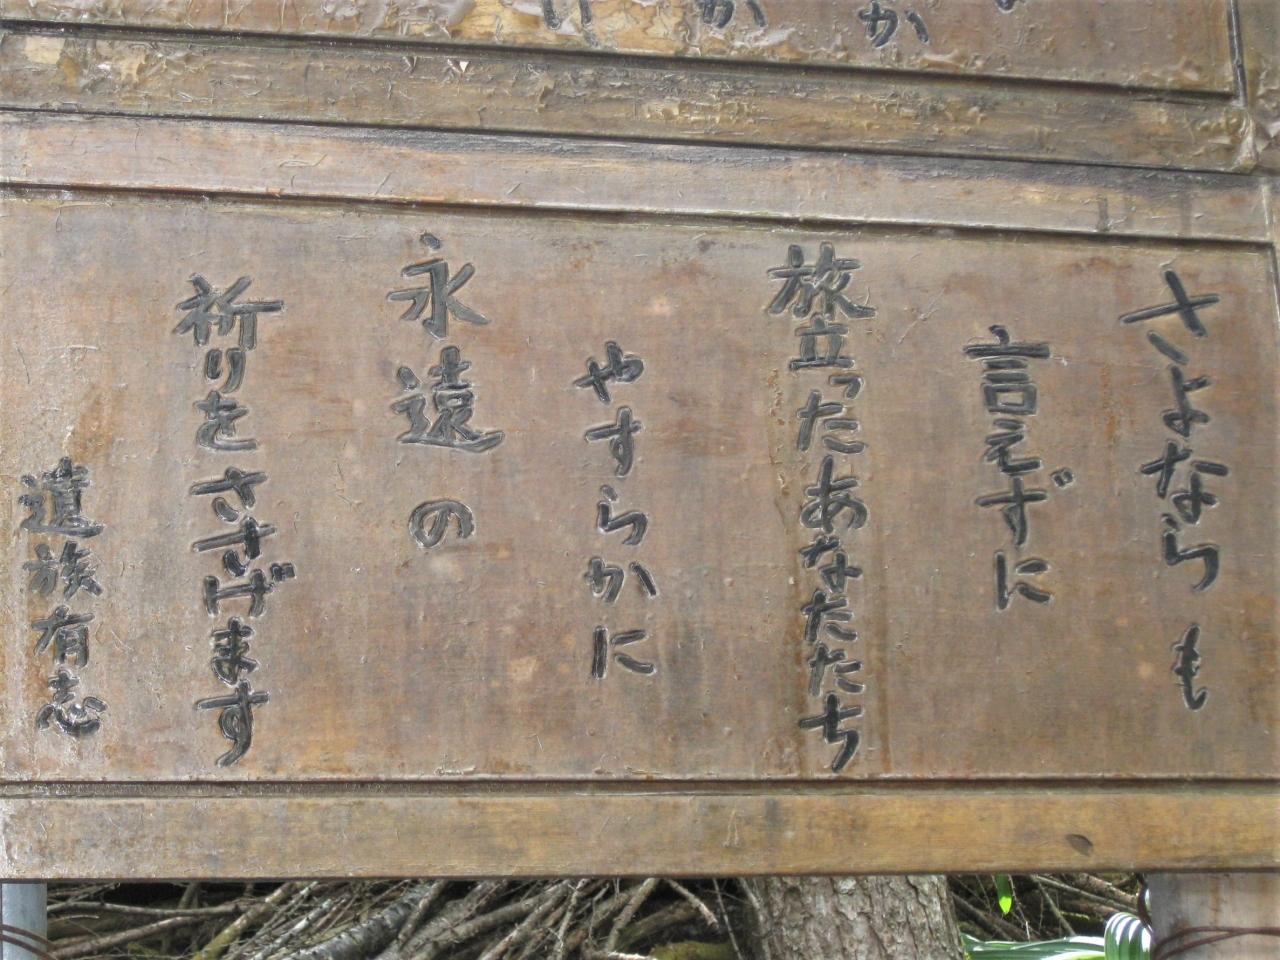 さよならも
言えずに
旅立ったあなたたち
やすらかに
永遠の
祈りをささげます
遺族有志